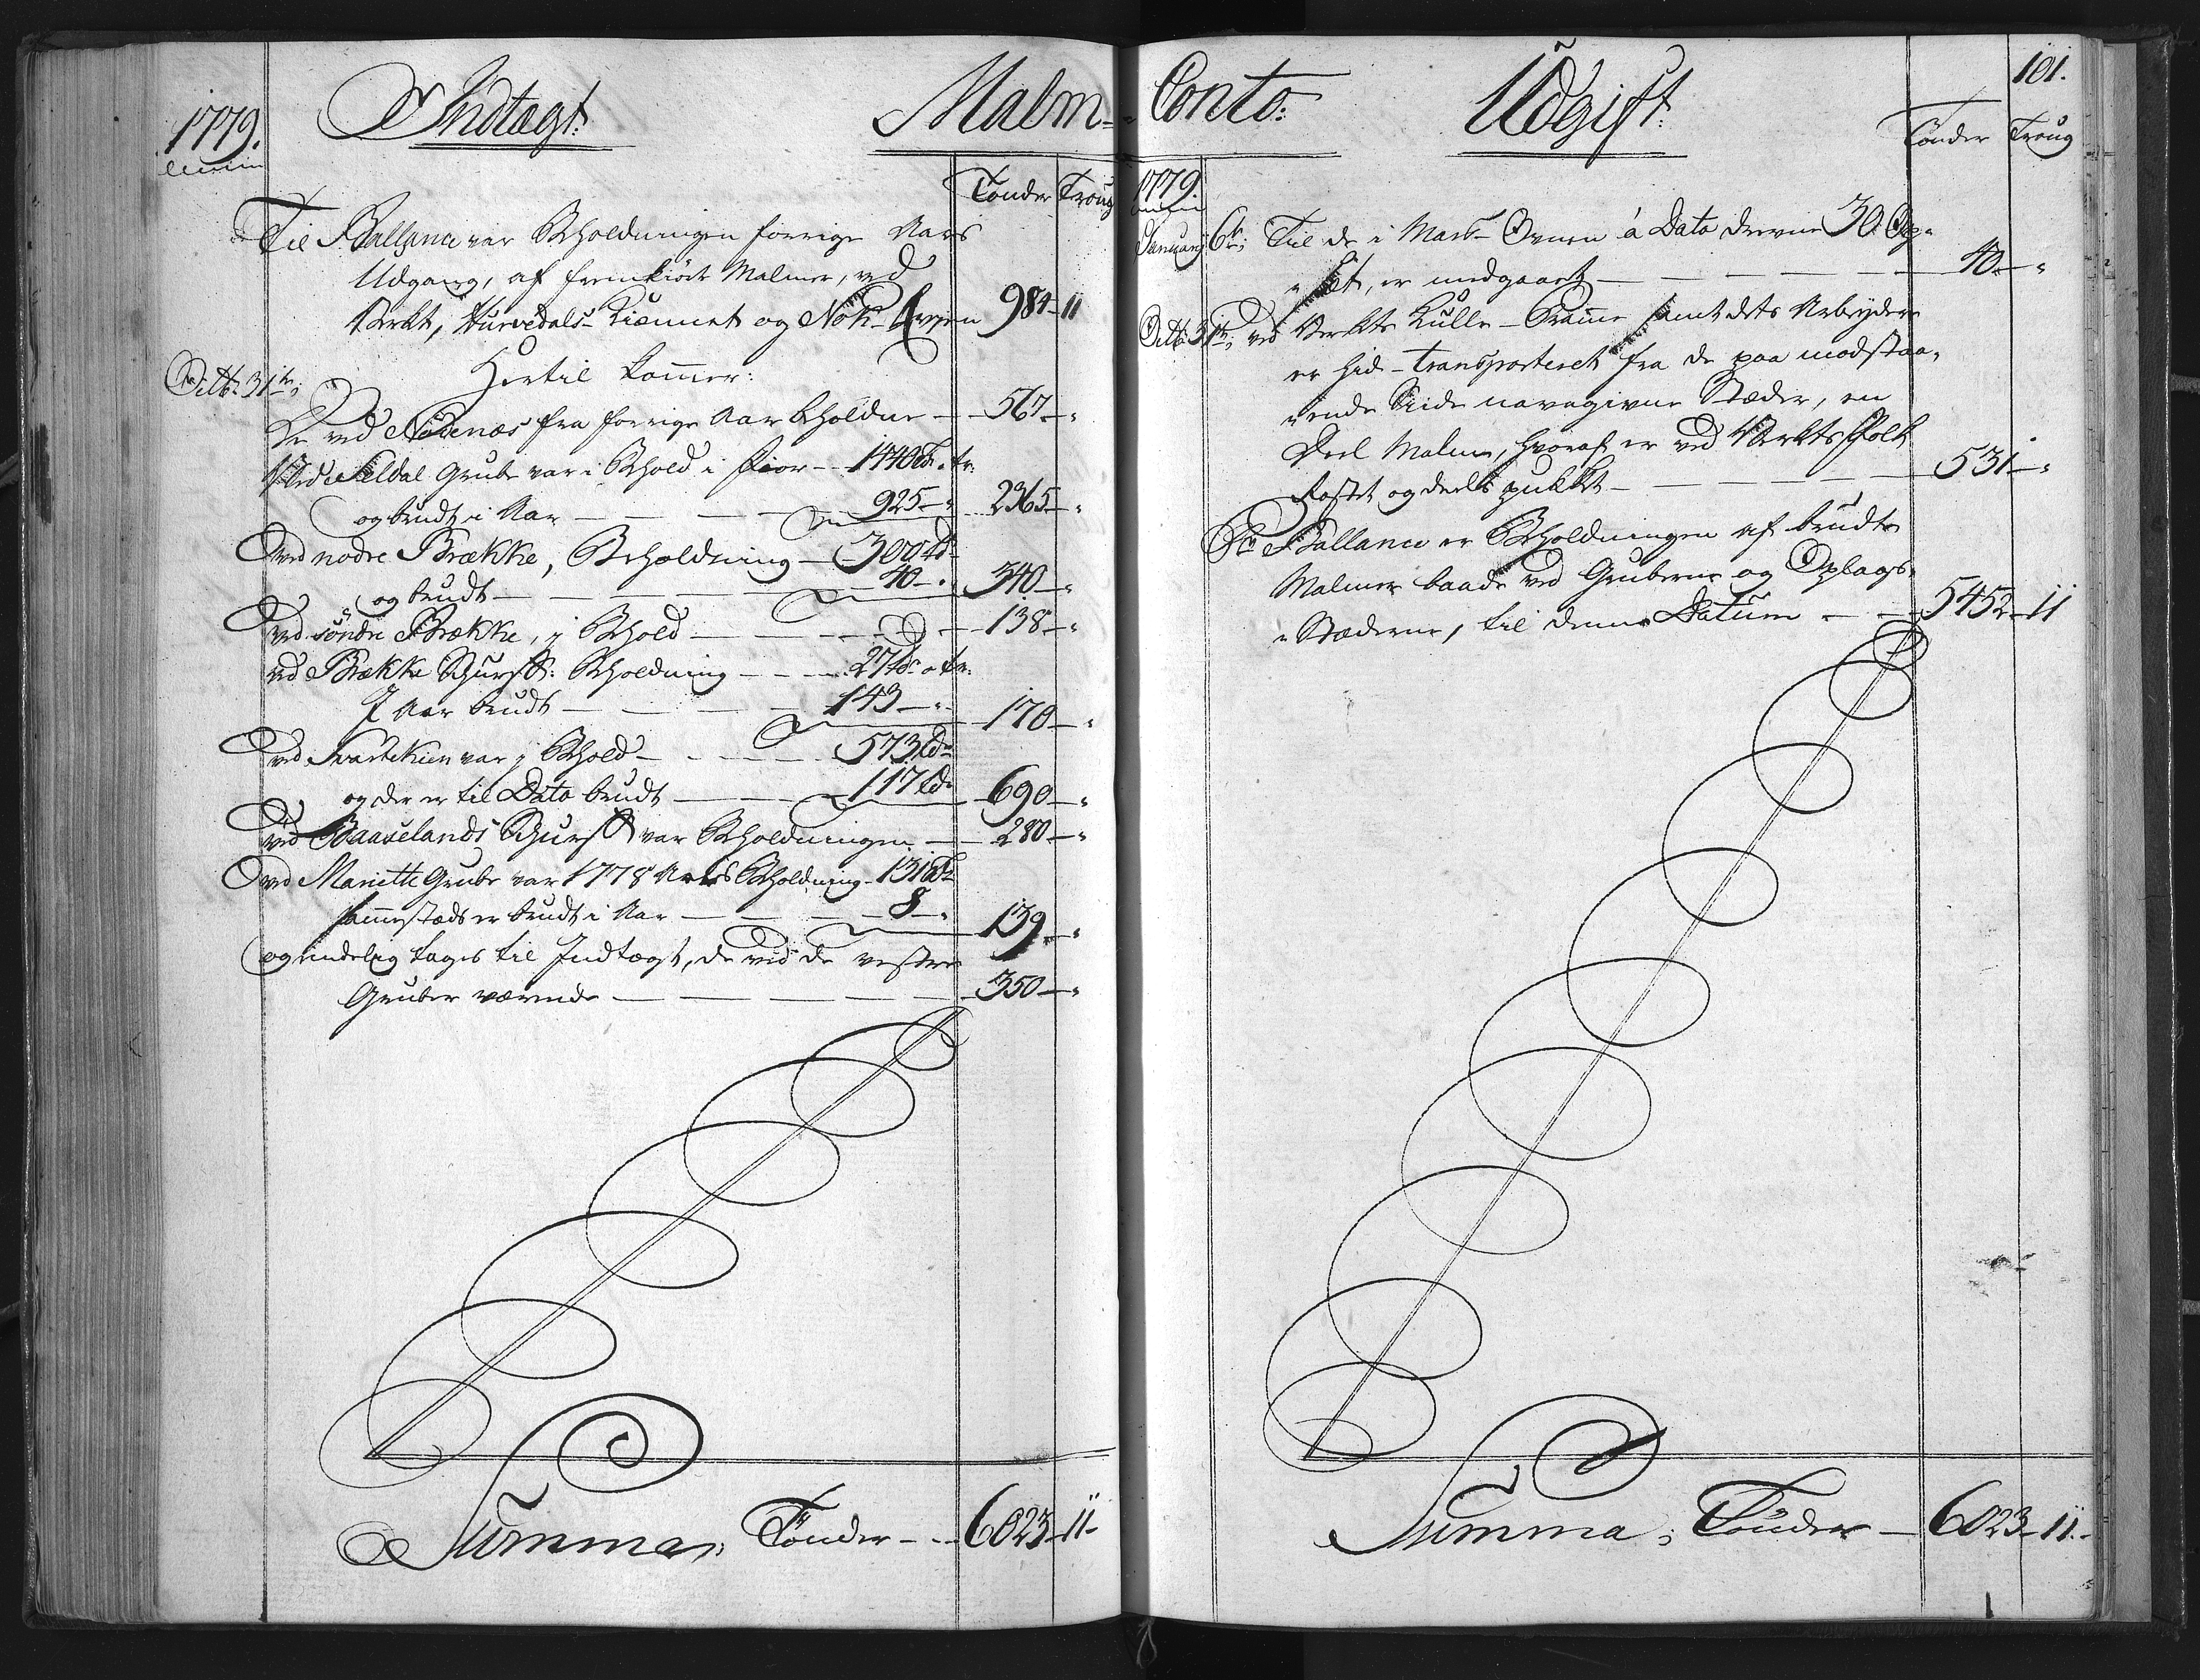 1779.
Indtægt.
Malm-
Tønder Troug
Til Ballance var Beholdningen forrige Aars
Udgang, af fremkiørt Malmer, ved
Verket, Hurvedals- Kiennet og Nøk- 984 - 11
Decbr: 31te;
Hertil kommer:
De ved Nødenæs fra forrige Aar beholdne - 567 - "
Ved Seldal Grube var i Behold i Fior - 1440 Td. " Tr:
og brudt i Aar - 925 - " 2365 - "
ved nodre Brække, Beholdning - 300 td
og brudt - 40 - " 340 - "
ved søndre Brække, i Behold - 138 - "
ved Brække Skurf: Beholdning - 27 td: " tr:
I Aar brudt - 143 - " 170 - "
ved Svartekien var i Behold - 573 td
og der er til Dato brudt - 117 td 690 - "
ved Baaselands Skurf var Beholdningen - 280 - "
ved Mariette Grube var 1778 Aars Beholdning - 131 Td
sammestæds er brudt i Aar - 8 - " 139 - "
og endelig tages til Indtægt, de ved de vestre
Gruber værende - 350 - "
Summa, Tønder - 6023 - 11 -
Conto:
Udgift.
101.
Tønder Troug
1779.
January 6te; Til de i Mas- Ovnen á Dato drevne 30 Op-
"sæt, er medgaaet - 40 - "
Decbr: 31te; ved Verkets Kulle- Pramme samt dets Arbeydere
er hid- transporteret fra de paa modstaa-
"ende Siide navngivne Stæder, en
Deel Malm, hvoraf er ved Verkets Folk
Rostet og deels pukket - 531 - "
Pr Ballance er Beholdningen af brudte
Malmer baade ved Gruberne og Oplags-
"Stæderne, til denne Datum - 5452 - 11
Summa; Tønder - 6023 - 11.